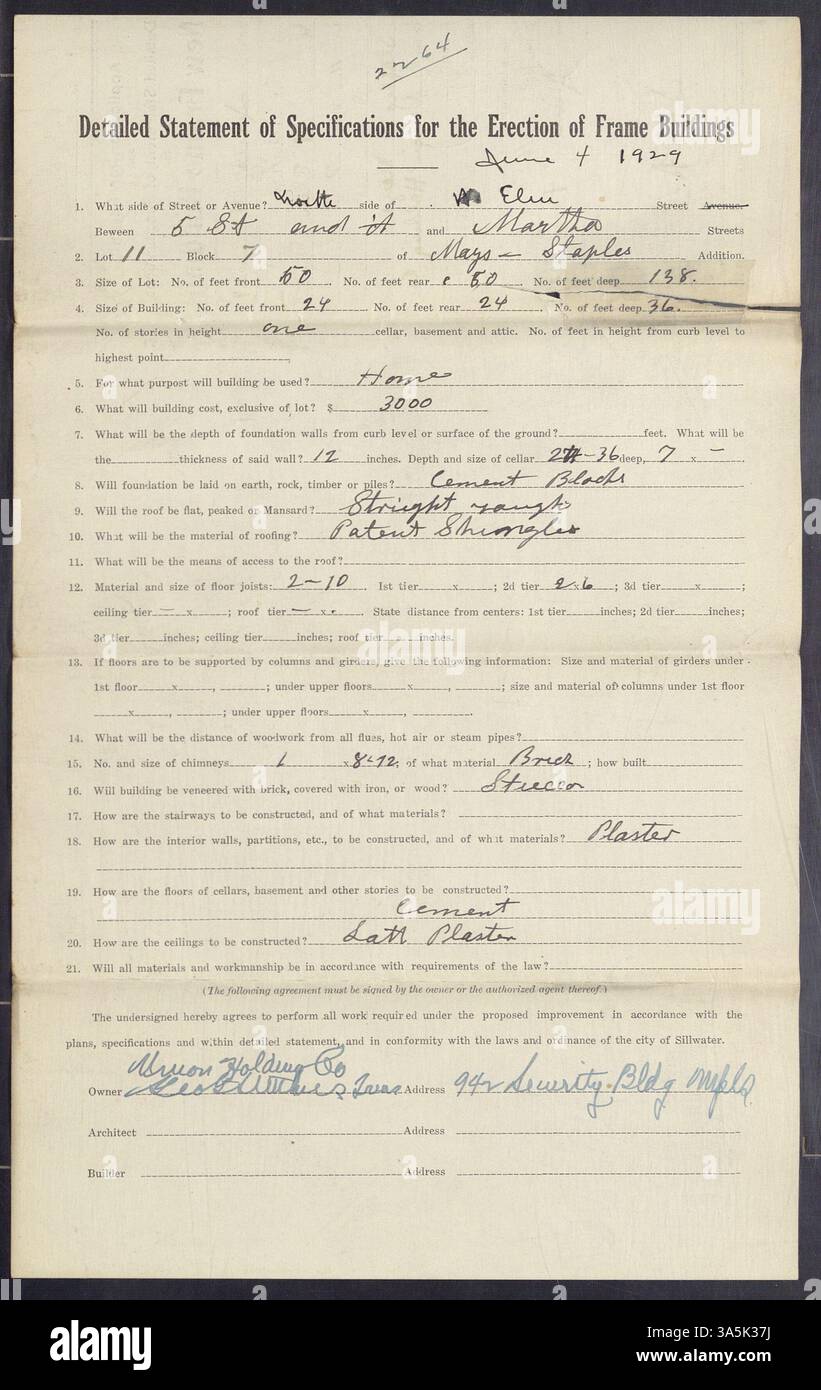 2264
Detailed Statement of Specifications for the Erection of Frame Buildings
June 4 1929
1. What side of Street or Avenue? North side of W Elm Street Avenue
Beween 5 St and and Martha Streets
2. Lot 11 Block 7 of Mays - Staples Addition.
3. Size of Lot: No. of feet front 50 No. of feet rear 50 No. of feet deep 138.
4. Size of Building: No. of feet front 24 No. of feet rear 24 No. of feet deep 36.
No. of stories in height one cellar, basement and attic. No. of feet in height from curb level to
highest point
5. For what purpost will building be used? Home
6. What will building cost, exclusive of lot? $ 3000
7. What will be the depth of foundation walls from curb level or surface of the ground? feet. What will be
the thickness of said wall? 12 inches. Depth and size of cellar 24-36 deep, 7 x -
8. Will foundation be laid on earth, rock, timber or piles? Cement Blocks
9. Will the roof be flat, peaked or Mansard? Stright
10. What will be the material of roofing? Patent Shingles
11. What will be the means of access to the roof?
12. Material and size of floor joists: 2-10 1st tier x ; 2d tier 2x6 ; 3d tier x ;
ceiling tier - x ; roof tier - x . State distance from centers: 1st tier inches; 2d tier inches;
3d tier inches; ceiling tier inches; roof tier inches.
13. If floors are to be supported by columns and girders, give the following information: Size and material of girders under
1st floor x , ; under upper floors x , ; size and material of columns under 1st floor
x , ; under upper floors x , .
14. What will be the distance of woodwork from all flues, hot air or steam pipes?
15. No. and size of chimneys 1 x 8-12; of what material Brick ; how built
16. Will building be veneered with brick, covered with iron, or wood? Stucco
17. How are the stairways to be constructed, and of what materials?
18. How are the interior walls, partitions, etc., to be constructed, and of what materials? Plaster
19. How are the floors of cellars, basement and other stories to be constructed?
Cement
20. How are the ceilings to be constructed? Lath Plaster
21. Will all materials and workmanship be in accordance with requirements of the law?
(The following agreement must be signed by the owner or the authorized agent thereof.)
The undersigned hereby agrees to perform all work required under the proposed improvement in accordance with the
plans, specifications and within detailed statement, and in conformity with the laws and ordinance of the city of Sillwater.
Union Holding Co
Owner Treas Address 942 Security Bldg Mpls
Architect Address
Builder Address
alamy
alamy
alamy
alamy
alamy
Image ID: 3A5K37J
www.alamy.com